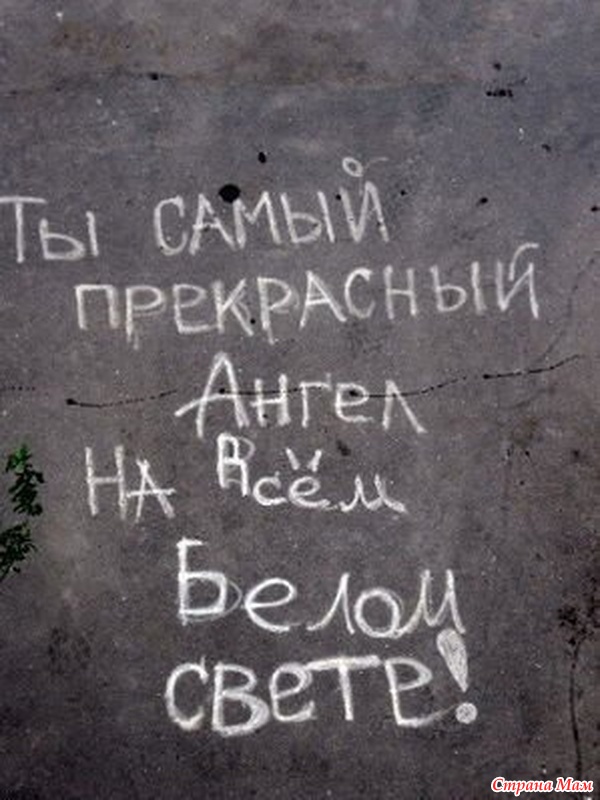 Ты САМЫЙ
ПРЕКРАСНЫЙ
Ангел
НА Всём
Белом
свете!
Страна Мам